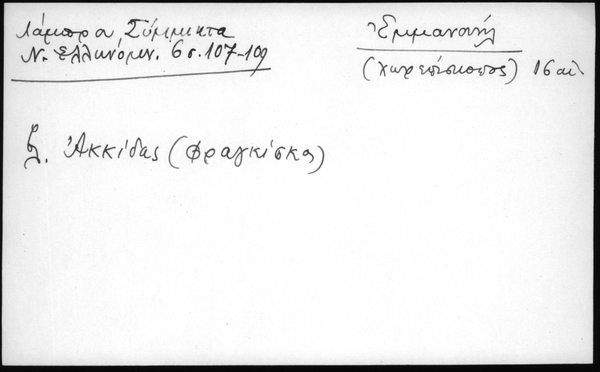 Λάμπρου Σύμμικτα
Ν. Ἑλληνόμν. 6 σ. 107-109
Ἐμμανουήλ
(χωρεπίσκοπος) 16 αἰ.
βλ. Ἀκκίδας (Φραγκίσκος)